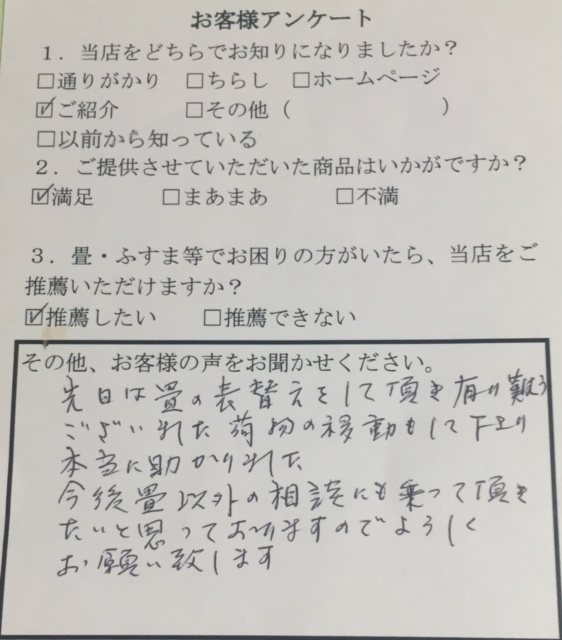 お客様アンケート
１．当店をどちらでお知りになりましたか？
□通りがかり □ちらし □ホームページ
☑ご紹介 □その他（ ）
□以前から知っている
２．ご提供させていただいた商品はいかがですか？
☑満足 □まあまあ □不満
３．畳・ふすま等でお困りの方がいたら、当店をご
推薦いただけますか？
☑推薦したい □推薦できない
その他、お客様の声をお聞かせください。
先日は畳の表替えをして頂き有り難う
ございました 荷物の移動もして下さり
本当に助かりました
今後畳以外の相談にも乗って頂き
たいと思っておりますのでよろしく
お願い致します